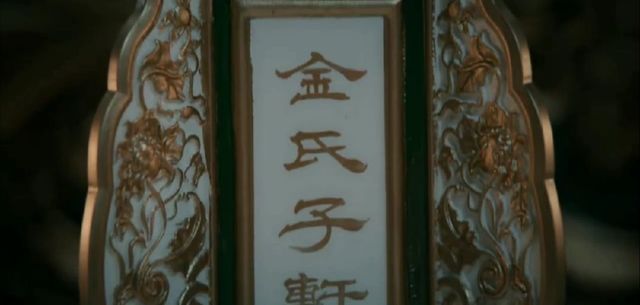 金氏子軒